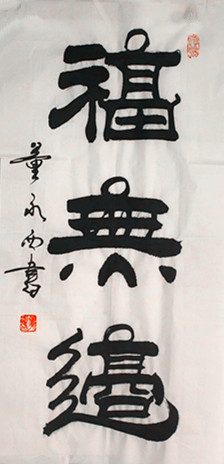 福無邊
董永西書